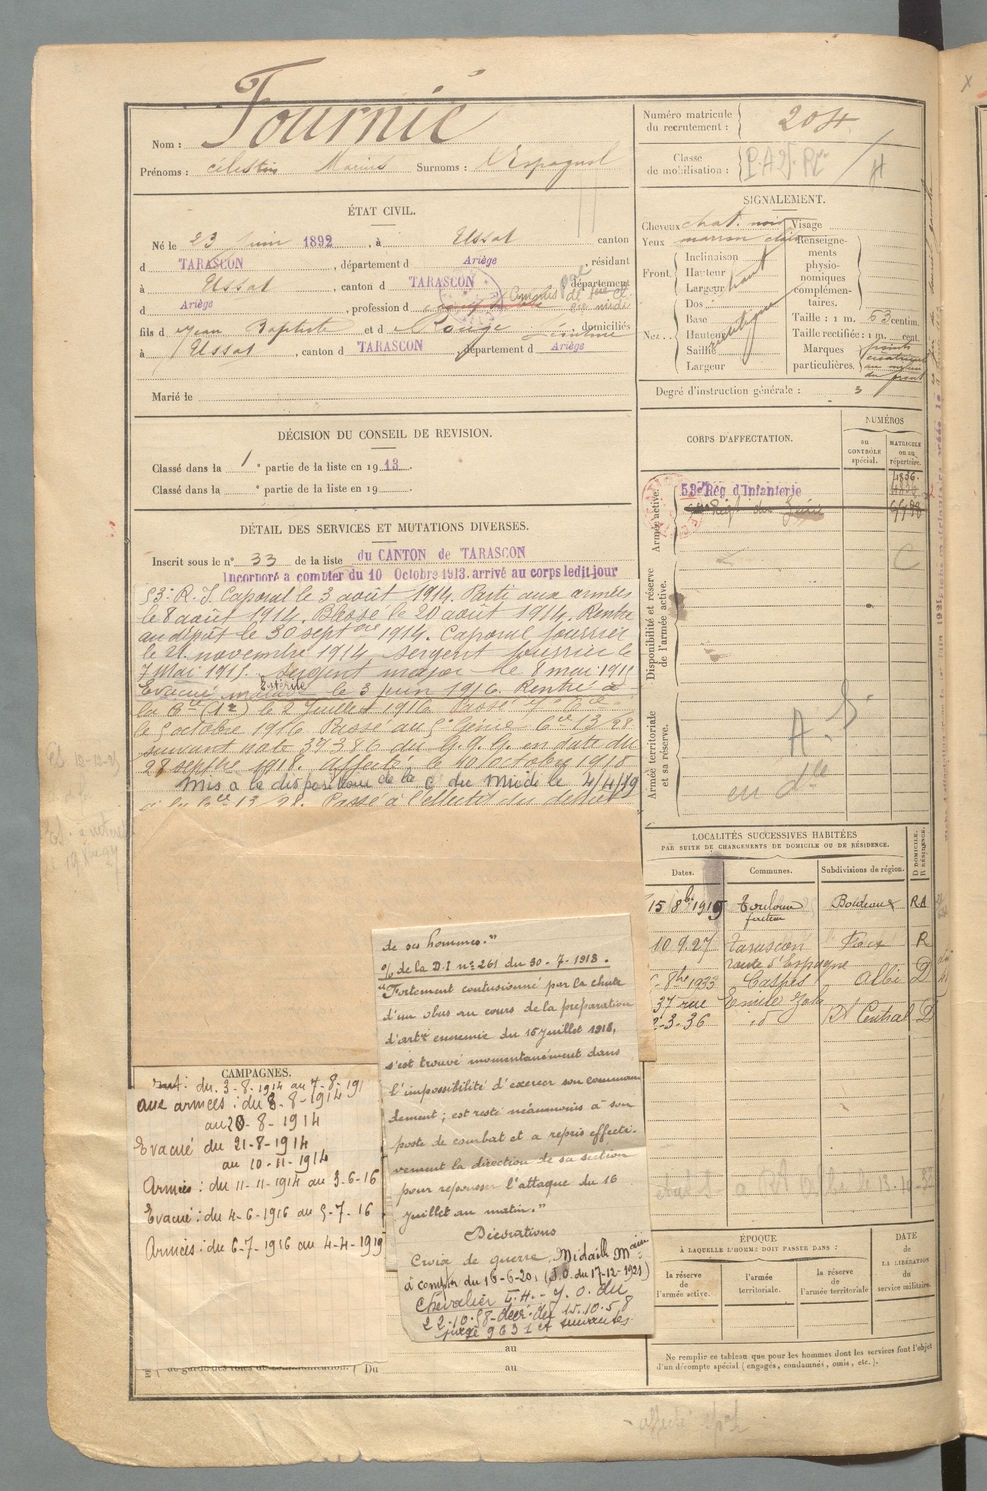 Nom : Fournié
Prénoms : Célestin Marius Surnoms : l'Espagnol
ÉTAT CIVIL.
Né le 23 Juin 1892, à Ussat canton
d TARASCON, département d Ariège, résidant
à Ussat, canton d TARASCON département
d Ariège, profession d
fils d Jean Baptiste et d Rouge, domiciliés
à Ussat, canton d TARASCON, département d Ariège
Marié le
DÉCISION DU CONSEIL DE REVISION.
Classé dans la 1e partie de la liste en 1913.
Classé dans la e partie de la liste en 19
DÉTAIL DES SERVICES ET MUTATIONS DIVERSES.
Inscrit sous le n° 33 de la liste du CANTON de TARASCON
Incorporé a compter du 10 Octobre 1913. arrivé au corps ledit jour
53e R.I. Caporal le 3 août 1914. Parti aux armées
le 8 août 1914. Blessé le 20 août 1914. Rentré
au dépôt le 30 septbre 1914. Caporal fourrier
le 21 novembre 1914 Sergent fourrier le
7 Mai 1915. Sergent major le 8 mai 1915
Evacué malade Entérite le 3 juin 1916. Rentré à
la Cie le 2 Juillet 1916 Passé
le 5 octobre 1916 Passé au 5e Génie Cie 13/28
suivant note 37386 du G.Q.G. en date du
28 septbre 1918. affecté le 10 octobre 1918
Mis à la disposition de la C du Midi le 4/4/19
à la Cie 13/28. Passé à l'effectif du
de ses hommes."
O/ de la D.I n° 261 du 30-7-1918.
"Fortement contusionné par la chute
d'un obus au cours de la préparation
d'artie ennemie du 15 Juillet 1918,
s'est trouvé momentanément dans
l'impossibilité d'exercer son comman
dement ; est resté néanmoins à son
poste de combat et a repris effecti-
vement la direction de sa section
pour repousser l'attaque du 16
Juillet au matin."
Décorations
Croix de guerre. Médaille Maire
à compter du 16-6-20, (J.O. du 17-12-1921)
Chevalier L.H. - J.O. du
22.10.58 - décr. du 15.10.58
page 9631 et suivantes
CAMPAGNES.
du 3-8-1914 au 7-8-191
aux armées : du 8-8-1914
au 20-8-1914
Evacué du 21-8-1914
au 10-11-1914
Armées : du 11-11-1914 au 3-6-16
Evacué : du 4-6-1916 au 5-7-16
Armées : du 6-7-1916 au 4-4-1919
au
Du au
Numéro matricule
du recrutement : 204
Classe
de mobilisation :
SIGNALEMENT.
Cheveux chat. noir
Yeux marron clair
Front.
Inclinaison
Hauteur
Largeur haut
Nez...
Dos
Base
Hauteur
Saillie
Largeur
rectiligne
Visage
Renseigne-
ments
physio-
nomiques
complémen-
taires.
Taille : 1 m. 53 centim.
Taille rectifiée : 1 m. cent.
Marques
particulières.
Degré d'instruction générale : 3
CORPS D'AFFECTATION.
NUMÉROS
au
CONTRÔLE
spécial.
MATRICULE
ou au
répertoire.
Armée active.
53e Rég d'Infanterie 1836
Disponibilité et réserve
de l'armée active.
Armée territoriale
et sa réserve.
LOCALITÉS SUCCESSIVES HABITÉES
PAR SUITE DE CHANGEMENTS DE DOMICILE OU DE RÉSIDENCE.
Dates. Communes. Subdivisions de région. D DOMICILE, R RÉSIDENCE.
15 8bre 1915 Toulouse Bordeaux RA
10.9.27 Tarascon Foix R
route d'Espagne
8bre 1933 Castres Albi D
37 rue Emile Zola
2-3-36 id Bt Central D
ÉPOQUE
À LAQUELLE L'HOMME DOIT PASSER DANS :
la réserve
de
l'armée active.
l'armée
territoriale.
la réserve
de
l'armée territoriale
DATE
de
LA LIBÉRATION
du
service militaire.
Ne remplir ce tableau que pour les hommes dont les services font l'objet
d'un décompte spécial (engagés, condamnés, omis, etc.).